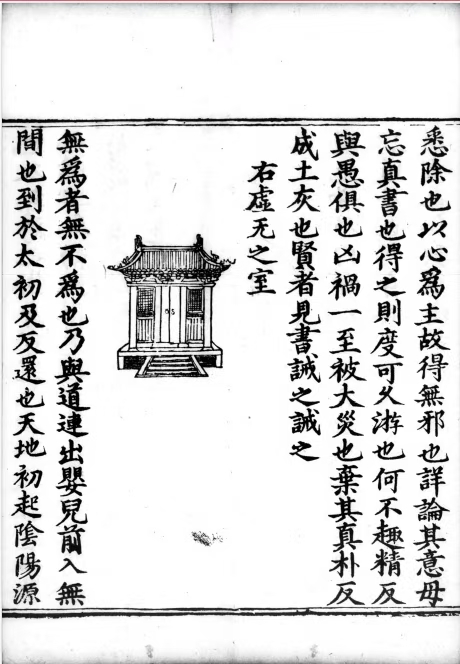 悉除也以心為主故得無邪也詳論其意毋
忘真書也得之則度可久游也何不趣精反
與愚俱也凶禍一至被大災也棄其真朴反
成土灰也賢者見書誡之誡之
右虛无之室
無為者無不為也乃與道連出嬰兒前入無
間也到於太初乃反還也天地初起陰陽源